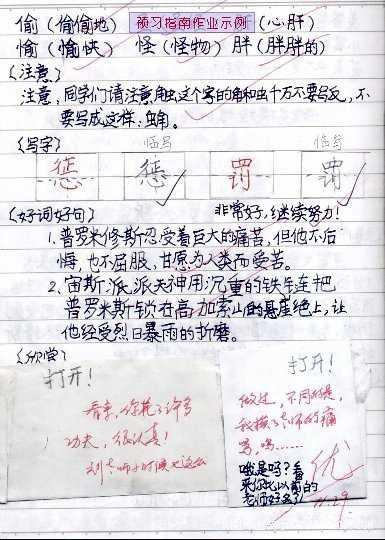 偷（偷偷地） 预习指南作业示例 （心肝）
愉（愉快） 怪（怪物） 胖（胖胖的）
〈注意〉
注意，同学们请注意触这个字的角和虫千万不要写反，不
要写成这样：
〈写字〉 临写 临写
惩 惩 罚 罚
〈好词好句〉 非常好，继续努力！
1. 普罗米修斯忍受着巨大的痛苦，但他不后
悔，也不屈服，甘愿为人类而受苦。
2. 宙斯派 派火神用沉重的铁链把
普罗米斯锁在高加索山的悬崖绝上，让
他经受烈日暴雨的折磨。
打开！
打开！
看来，你花了许多
功夫，很认真！
刘老师小时候也这么
做过，不同的是，
我挨了老师的痛
骂，呜……
哦是吗？看
来你比以前的
老师好多了！
优
11.29.